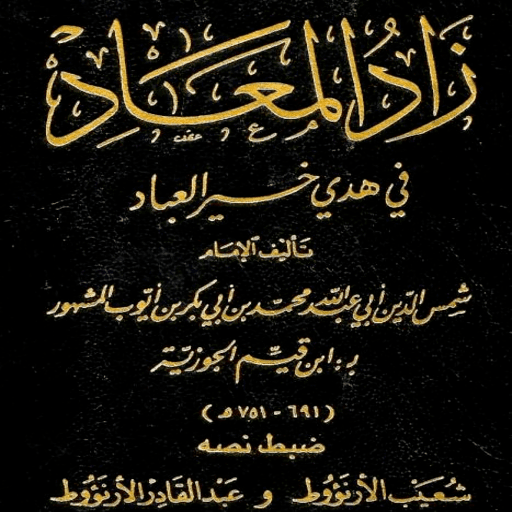 زَادُ المَعَادِ
في هدي خير العباد
تأليف الإمام
شمس الدين أبي عبد الله محمد بن أبي بكر بن أيوب المشهور
بـ: ابن قيّم الجوزيّة
(٦٩١ - ٧٥١ هـ)
ضبط نصه
شُعَيْب الأرنَؤُوط و عَبْد القَادِر الأرنَؤُوط